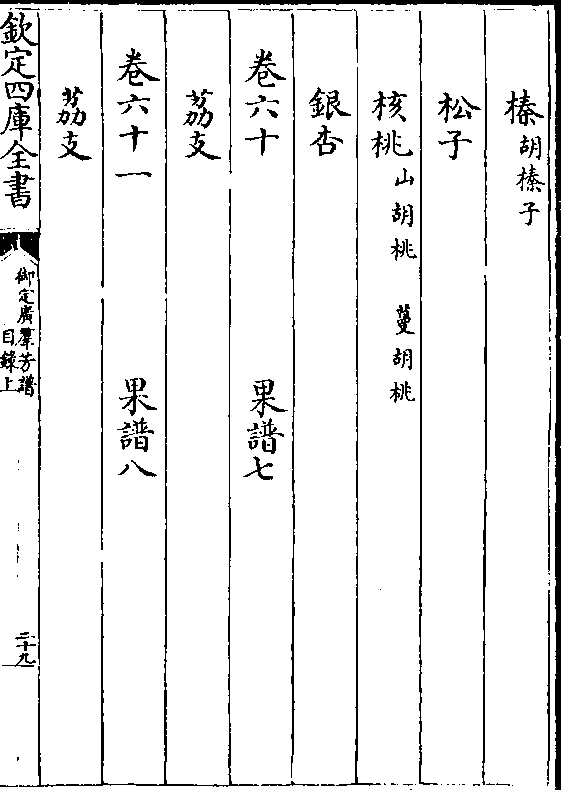 榛胡榛子
松子
核桃山胡桃 蔓胡桃
銀杏
卷六十 果譜七
荔支
卷六十一 果譜八
荔支
欽定四庫全書
御定廣羣芳譜
目錄上
二十九